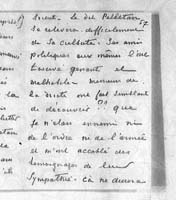 brient. Le dit Pelletan
57
se relevera difficilement
de sa culbute. Ses amis
politiques eux même l'ont
trouvé gênant et
malhabile. Messieurs de
la droite ont fait semblant
de découvrir ?! que
je n'étais ennemi ni
de l'ordre ni de l'armée
et m'ont accablé des
temoignages de leur
Sympathie. Cà ne durera